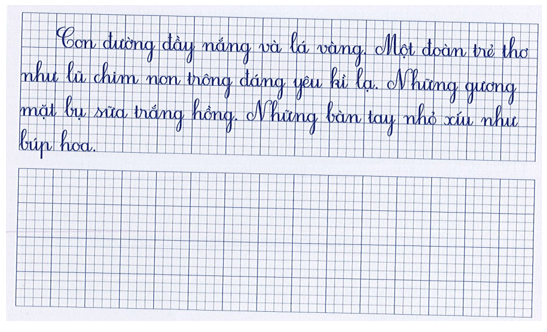 Con đường đầy nắng và lá vàng. Một đoàn trẻ thơ
như lũ chim non trông đáng yêu kì lạ. Những gương
mặt bụ sữa trắng hồng. Những bàn tay nhỏ xíu như
búp hoa.